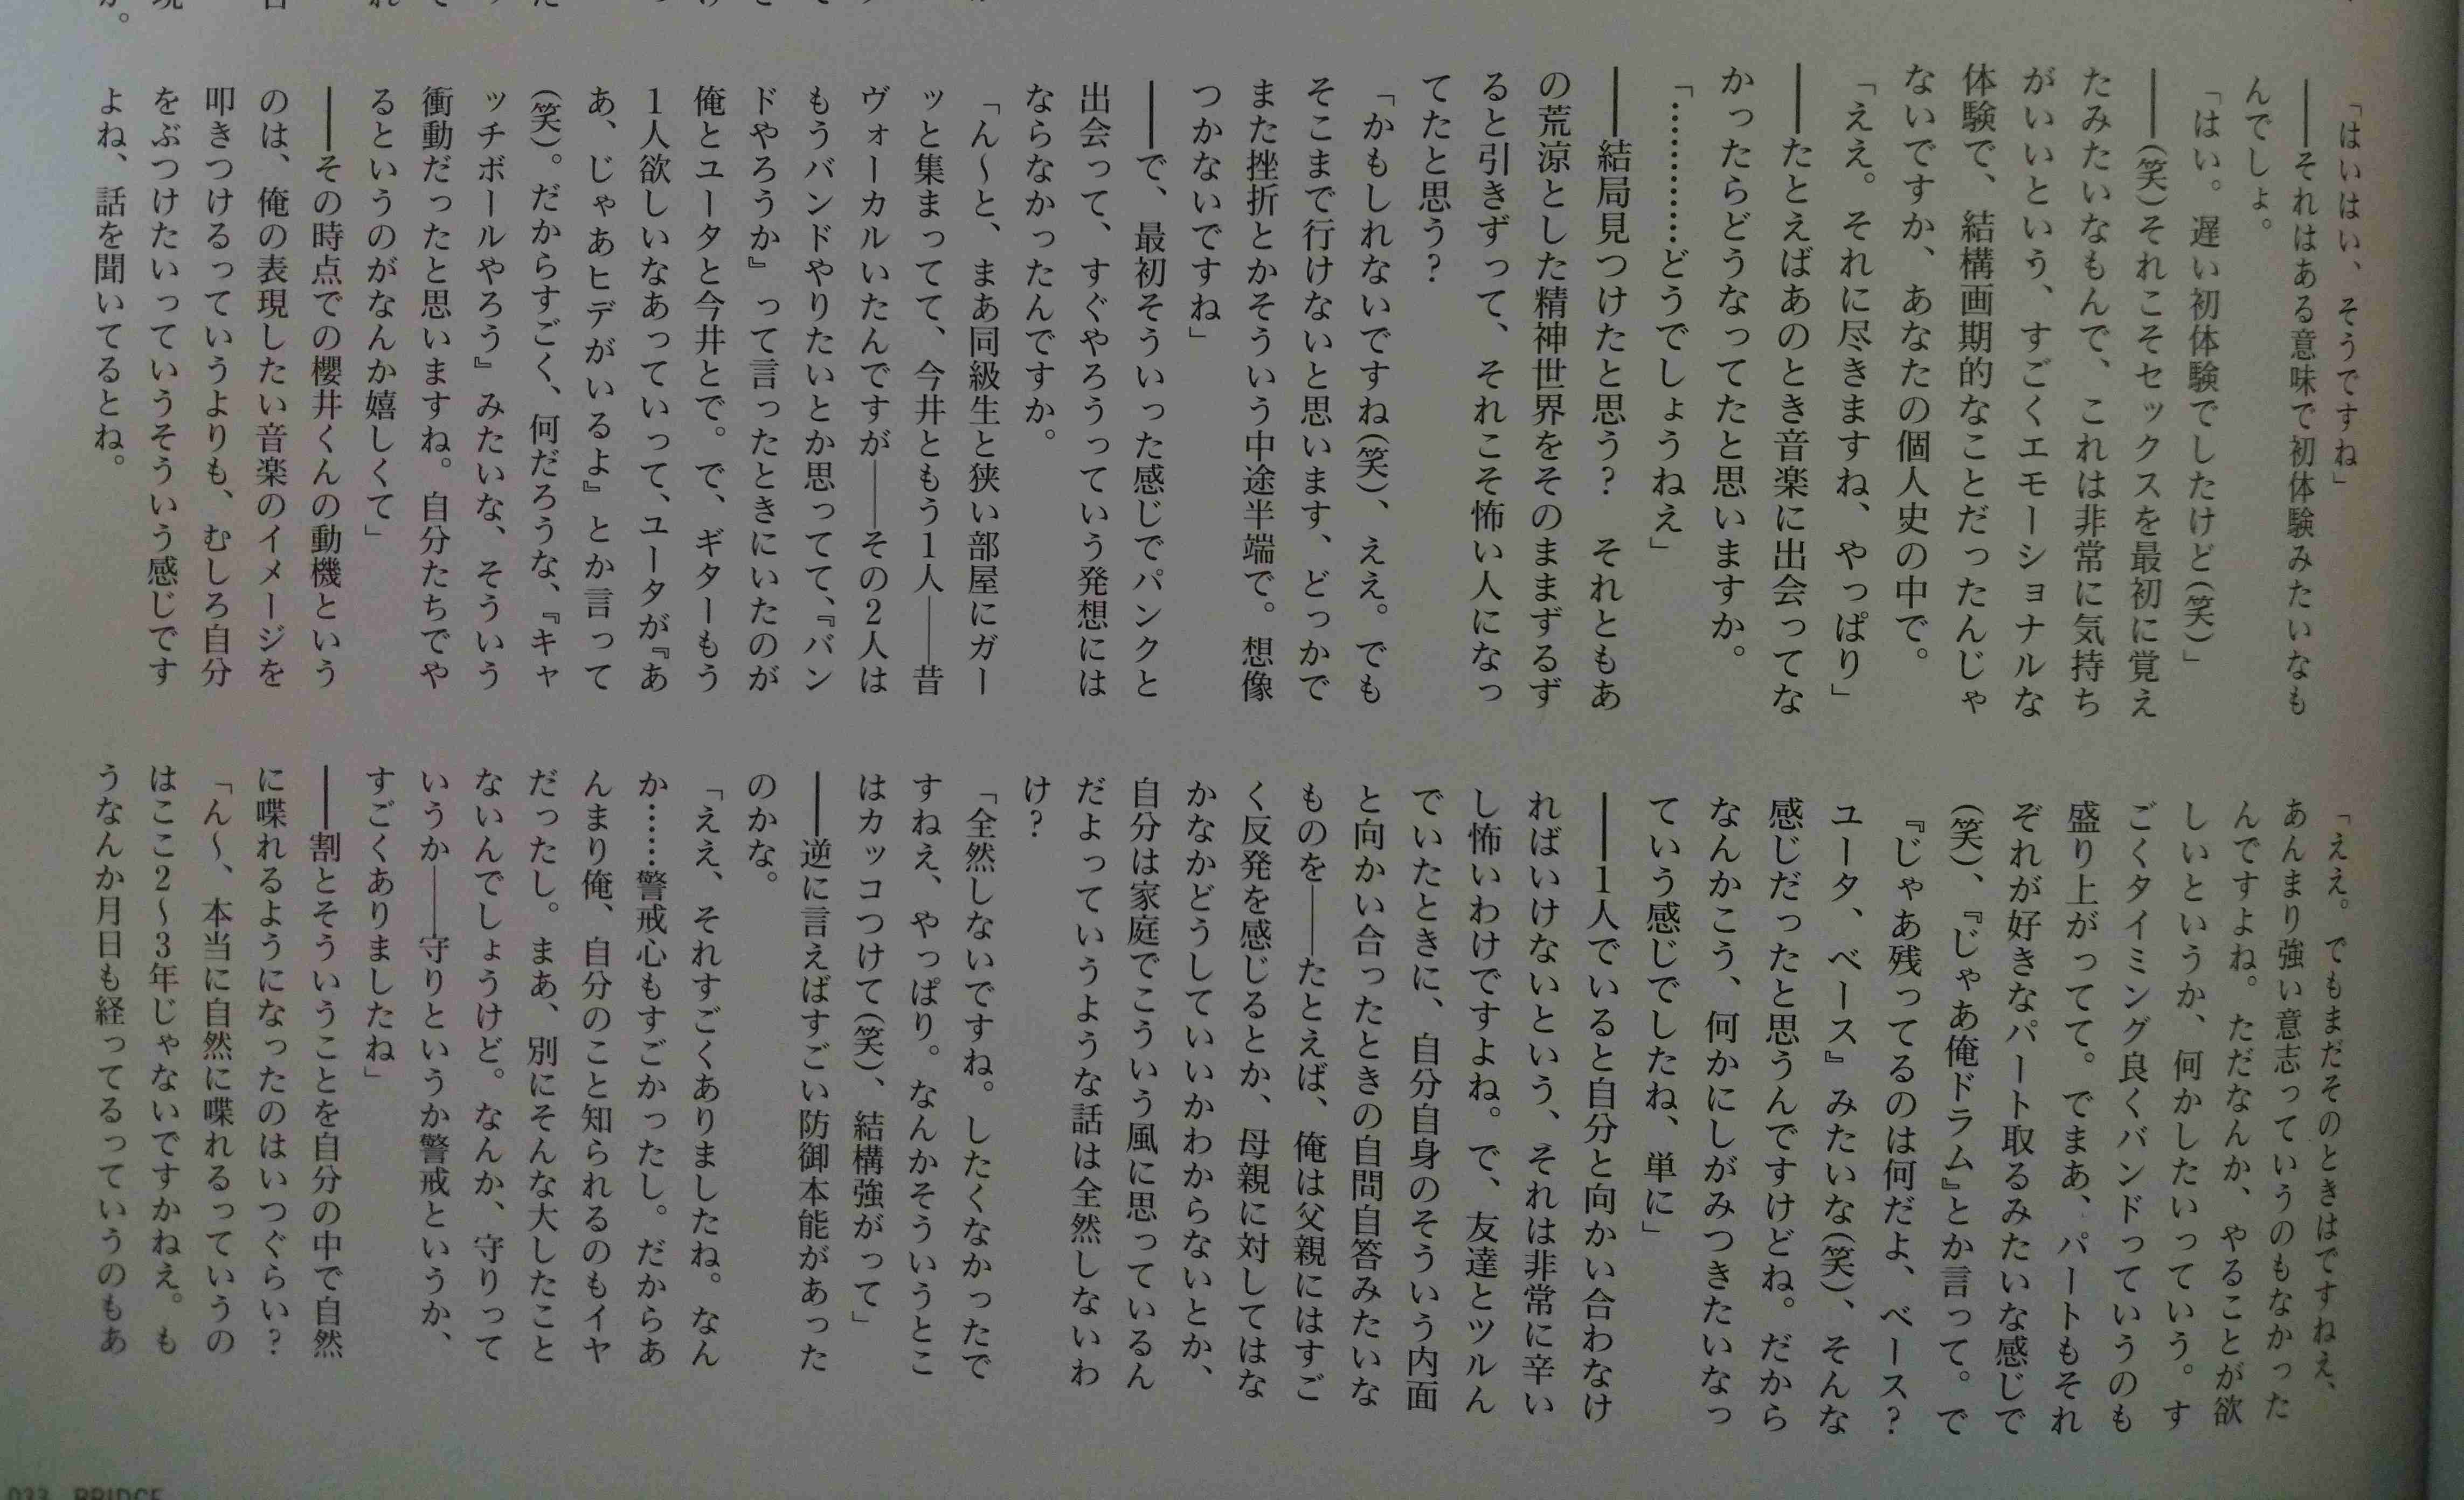 「はいはい、そうですね」
――それはある意味で初体験みたいなも
んでしょ。
「はい。遅い初体験でしたけど(笑)」
――(笑)それこそセックスを最初に覚え
たみたいなもんで、これは非常に気持ち
がいいという、すごくエモーショナルな
体験で、結構画期的なことだったんじゃ
ないですか、あなたの個人史の中で。
「ええ。それに尽きますね、やっぱり」
――たとえばあのとき音楽に出会ってな
かったらどうなってたと思いますか。
「…………どうでしょうねえ」
――結局見つけたと思う？　それともあ
の荒涼とした精神世界をそのままずるず
ると引きずって、それこそ怖い人になっ
てたと思う？
「かもしれないですね(笑)、ええ。でも
そこまで行けないと思います、どっかで
また挫折とかそういう中途半端で。想像
つかないですね」
――で、最初そういった感じでパンクと
出会って、すぐやろうっていう発想には
ならなかったんですか。
「ん～と、まあ同級生と狭い部屋にガー
ッと集まってて、今井ともう1人――昔
ヴォーカルいたんですが――その2人は
もうバンドやりたいとか思ってて、『バン
ドやろうか』って言ったときにいたのが
俺とユータと今井とで。で、ギターもう
1人欲しいなあっていって、ユータが『あ
あ、じゃあヒデがいるよ』とか言って
(笑)。だからすごく、何だろうな、『キャ
ッチボールやろう』みたいな、そういう
衝動だったと思いますね。自分たちでや
るというのがなんか嬉しくて」
――その時点での櫻井くんの動機という
のは、俺の表現したい音楽のイメージを
叩きつけるっていうよりも、むしろ自分
をぶつけたいっていうそういう感じです
よね、話を聞いてるとね。
「ええ。でもまだそのときはですねえ、
あんまり強い意志っていうのもなかった
んですよね。ただなんか、やることが欲
しいというか、何かしたいっていう。す
ごくタイミング良くバンドっていうのも
盛り上がってて。でまあ、パートもそれ
ぞれが好きなパート取るみたいな感じで
(笑)、『じゃあ俺ドラム』とか言って。で
『じゃあ残ってるのは何だよ、ベース？
ユータ、ベース』みたいな(笑)、そんな
感じだったと思うんですけどね。だから
なんかこう、何かにしがみつきたいなっ
ていう感じでしたね、単に」
――1人でいると自分と向かい合わなけ
ればいけないという、それは非常に辛い
し怖いわけですよね。で、友達とツルん
でいたときに、自分自身のそういう内面
と向かい合ったときの自問自答みたいな
ものを――たとえば、俺は父親にはすご
く反発を感じるとか、母親に対してはな
かなかどうしていいかわからないとか、
自分は家庭でこういう風に思っているん
だよっていうような話は全然しないわ
け？
「全然しないですね。したくなかったで
すねえ、やっぱり。なんかそういうとこ
はカッコつけて(笑)、結構強がって」
――逆に言えばすごい防御本能があった
のかな。
「ええ、それすごくありましたね。なん
か……警戒心もすごかったし。だからあ
んまり俺、自分のこと知られるのもイヤ
だったし。まあ、別にそんな大したこと
ないんでしょうけど。なんか、守りって
いうか――守りというか警戒というか、
すごくありましたね」
――割とそういうことを自分の中で自然
に喋れるようになったのはいつぐらい？
「ん～、本当に自然に喋れるっていうの
はここ2～3年じゃないですかねえ。も
うなんか月日も経ってるっていうのもあ
033 BRIDGE